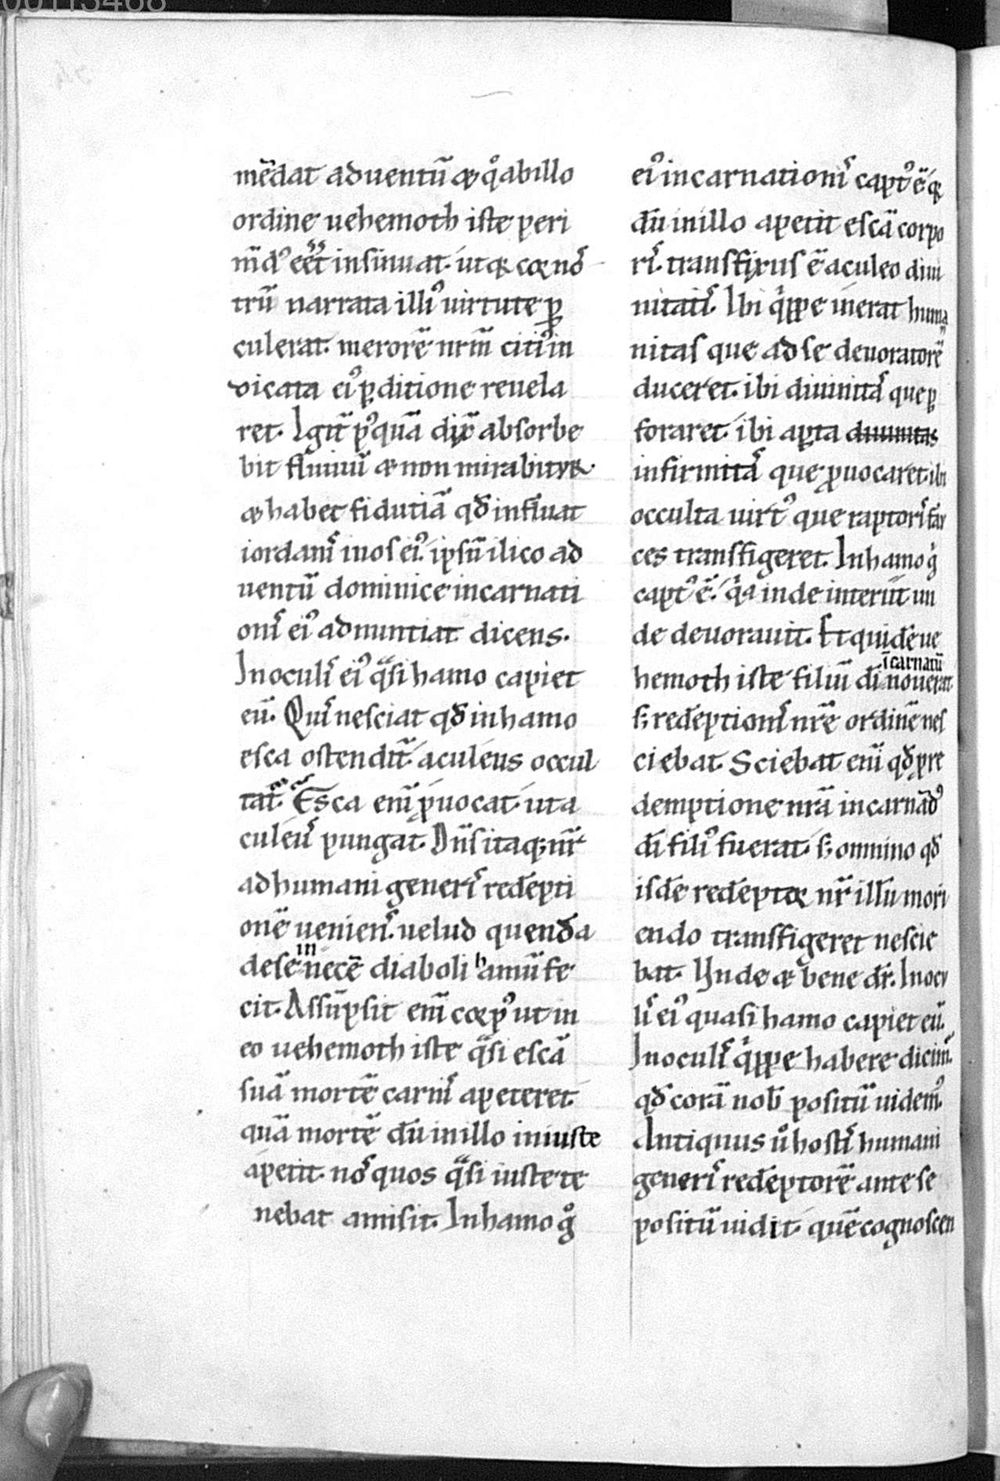 00113468
mẽdat aduentũ ⁊ q̊ abillo
ordine uehemoth iste peri
m̃dꝰ eẽt insinuat. ut q̨ cor nõ
trũ narrata illiꝰ uirtute ꝑ
culerat. merorẽ nrm̃ citiꝰ in
dicata eiꝰ ꝑditione reuela
ret. Igit̃ pꝰquã dix̃ absorbe
bit fluuiũ ⁊ non mirabitur.
⁊ habet fidutiã qđ influat
iordanĩ in os eiꝰ. ipsũ ilico ad
uentũ dominice incarnati
onĩ eiꝰ adnuntiat dicens.
In oculĩ eiꝰ q̃si hamo capiet
eũ. Quĩ nesciat qđ in hamo
esca ostendit̃ aculeus occul
tat̃. Esca enĩ ꝓuocat ut a
culeuĩ pungat. Dñs itaq; nr̃
ad humani generĩ redẽpti
onẽ ueniens. uelud quendã
de se in necẽ diaboli hamũ fe
cit. Assũpsit enĩ corpꝰ ut in
eo uehemoth iste q̃si escã
suã mortẽ carnĩ apeteret.
quã mortẽ dũ in illo iniuste
apetit. nõs quos q̃si iuste te
nebat amisit. In hamo g̊
eiꝰ incarnationĩ captꝰ ẽ. q̨
dũ in illo apetit escã corpo
rĩ. transfixus ẽ aculeo diui
nitatĩ. Ibi q̃ppe inerat huma
nitas que ad se deuoratorẽ
duceret. ibi diuinitã que ꝑ
foraret. ibi aꝑta diuinitas
infirmitã que ꝓuocaret. ibi
occulta uirtꝰ que raptorĩ fau
ces transfigeret. In hamo g̊
captꝰ ẽ. q̃a inde interiit un
de deuorauit. Et quidẽ ue
hemoth iste filiũ dĩ incarnatũ nouerat.
s; redẽptionĩ nrẽ ordinẽ nes
ciebat. Sciebat enĩ qđ pre
demptione nrã incarnãdꝰ
dĩ filiꝰ fuerat. s; omnino qđ
isdẽ redẽptor nr̃ illũ mori
endo transfigeret nescie
bat. Unde ⁊ bene dr̃. In ocu
lĩ eiꝰ quasi hamo capiet eũ.
In oculĩ q̃ppe habere dicimꝰ.
qđ corã nob̃ positũ uidemꝰ.
Antiquus ũ hostĩ humani
generĩ redẽptorẽ ante se
positũ uidit. quẽ cognoscen